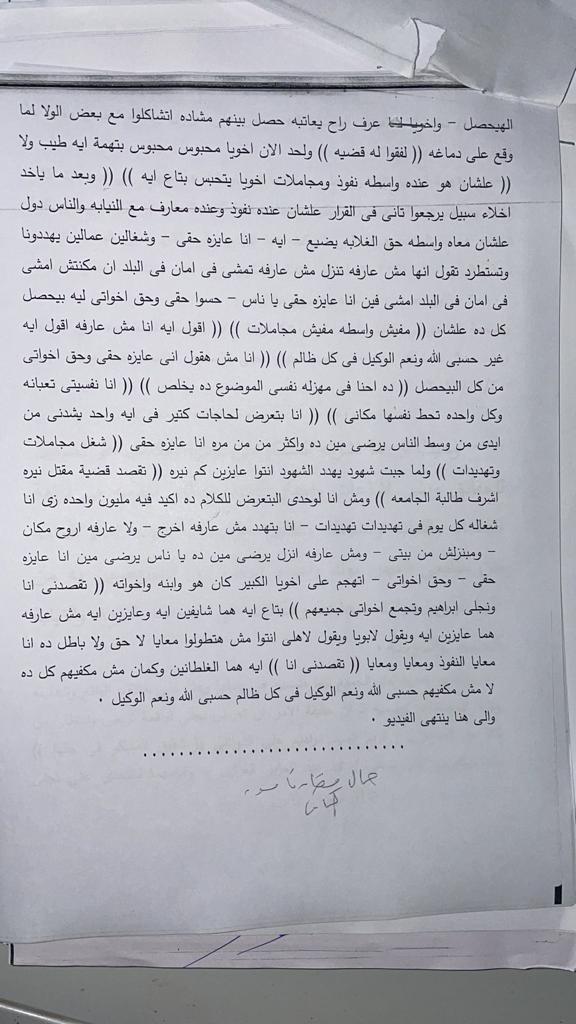 الهيحصل – واخويا لما عرف راح يعاتبه حصل بينهم مشاده اتشاكلوا مع بعض الولا لما
وقع على دماغه (( لفقوا له قضيه )) ولحد الان اخويا محبوس محبوس بتهمة ايه طيب ولا
(( علشان هو عنده واسطه نفوذ ومجاملات اخويا يتحبس بتاع ايه )) (( وبعد ما ياخد
اخلاء سبيل يرجعوا تانى فى القرار علشان عنده نفوذ وعنده معارف مع النيابه والناس دول
علشان معاه واسطه حق الغلابه يضيع – ايه – انا عايزه حقى – وشغالين عمالين يهددونا
وتستطرد تقول انها مش عارفه تنزل مش عارفه تمشى فى امان فى البلد ان مكنتش امشى
فى امان فى البلد امشى فين انا عايزه حقى يا ناس – حسوا حقى وحق اخواتى ليه بيحصل
كل ده علشان (( مفيش واسطه مفيش مجاملات )) (( اقول ايه انا مش عارفه اقول ايه
غير حسبى الله ونعم الوكيل فى كل ظالم )) (( انا مش هقول انى عايزه حقى وحق اخواتى
من كل البيحصل (( ده احنا فى مهزله نفسى الموضوع ده يخلص )) (( انا نفسيتى تعبانه
وكل واحده تحط نفسها مكانى )) (( انا بتعرض لحاجات كتير فى ايه واحد يشدنى من
ايدى من وسط الناس يرضى مين ده واكثر من من مره انا عايزه حقى (( شغل مجاملات
وتهديدات )) ولما جبت شهود يهدد الشهود انتوا عايزين كم نيره (( تقصد قضية مقتل نيره
اشرف طالبة الجامعه )) ومش انا لوحدى البتعرض للكلام ده اكيد فيه مليون واحده زى انا
شغاله كل يوم فى تهديدات تهديدات – انا بتهدد مش عارفه اخرج – ولا عارفه اروح مكان
– ومبنزلش من بيتى – ومش عارفه انزل يرضى مين ده يا ناس يرضى مين انا عايزه
حقى – وحق اخواتى – اتهجم على اخويا الكبير كان هو وابنه واخواته (( تقصدنى انا
ونجلى ابراهيم وتجمع اخواتى جميعهم )) بتاع ايه هما شايفين ايه وعايزين ايه مش عارفه
هما عايزين ايه ويقول لابويا ويقول لاهلى انتوا مش هتطولوا معايا لا حق ولا باطل ده انا
معايا النفوذ ومعايا ومعايا (( تقصدنى انا )) ايه هما الغلطانين وكمان مش مكفيهم كل ده
لا مش مكفيهم حسبى الله ونعم الوكيل فى كل ظالم حسبى الله ونعم الوكيل .
والى هنا ينتهى الفيديو .
..............................